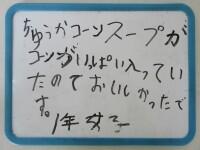 ちゅうかコーンスープが
コーンがいっぱい入ってい
たのでおいしかったで
す。
1年 女子